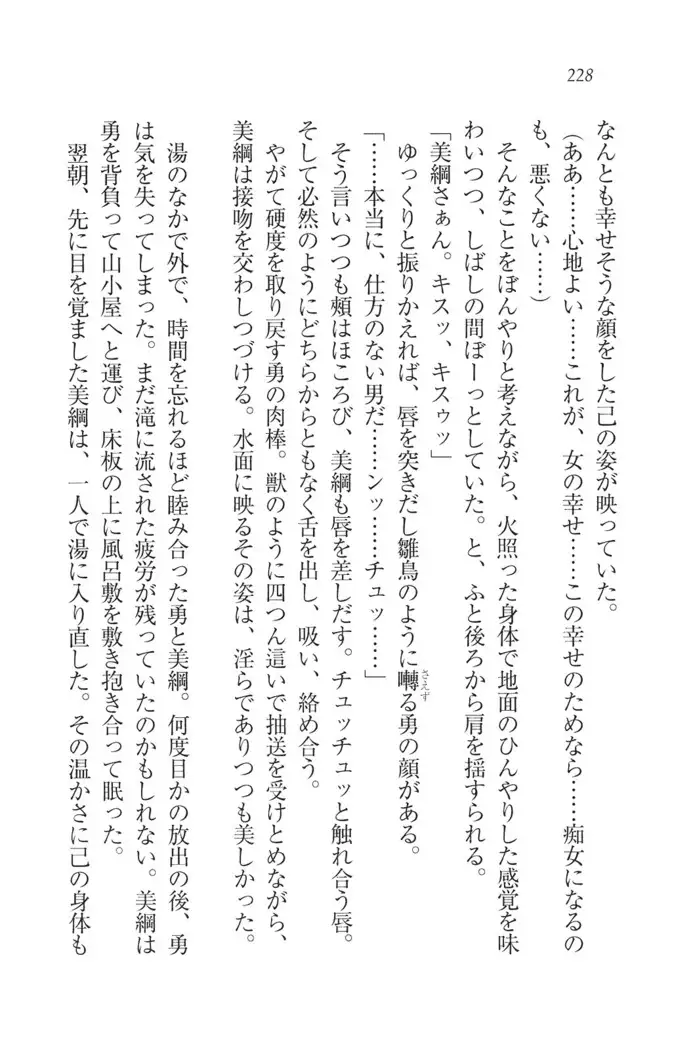 228
なんとも幸せそうな顔をした己の姿が映っていた。
（ああ……心地よい……これが、女の幸せ……この幸せのためなら……痴女になるの
も、悪くない……）
そんなことをぼんやりと考えながら、火照った身体で地面のひんやりした感覚を味
わいつつ、しばしの間ぼーっとしていた。と、ふと後ろから肩を揺すられる。
「美綱さぁん。キスッ、キスゥッ」
ゆっくりと振りかえれば、唇を突きだし雛鳥のように囀る勇の顔がある。
さえず
「……本当に、仕方のない男だ……ンッ……チュッ……」
そう言いつつも頰はほころび、美綱も唇を差しだす。チュッチュッと触れ合う唇。
そして必然のようにどちらからともなく舌を出し、吸い、絡め合う。
やがて硬度を取り戻す勇の肉棒。獣のように四つん這いで抽送を受けとめながら、
美綱は接吻を交わしつづける。水面に映るその姿は、淫らでありつつも美しかった。
湯のなかで外で、時間を忘れるほど睦み合った勇と美綱。何度目かの放出の後、勇
は気を失ってしまった。まだ滝に流された疲労が残っていたのかもしれない。美綱は
勇を背負って山小屋へと運び、床板の上に風呂敷を敷き抱き合って眠った。
翌朝、先に目を覚ました美綱は、一人で湯に入り直した。その温かさに己の身体も